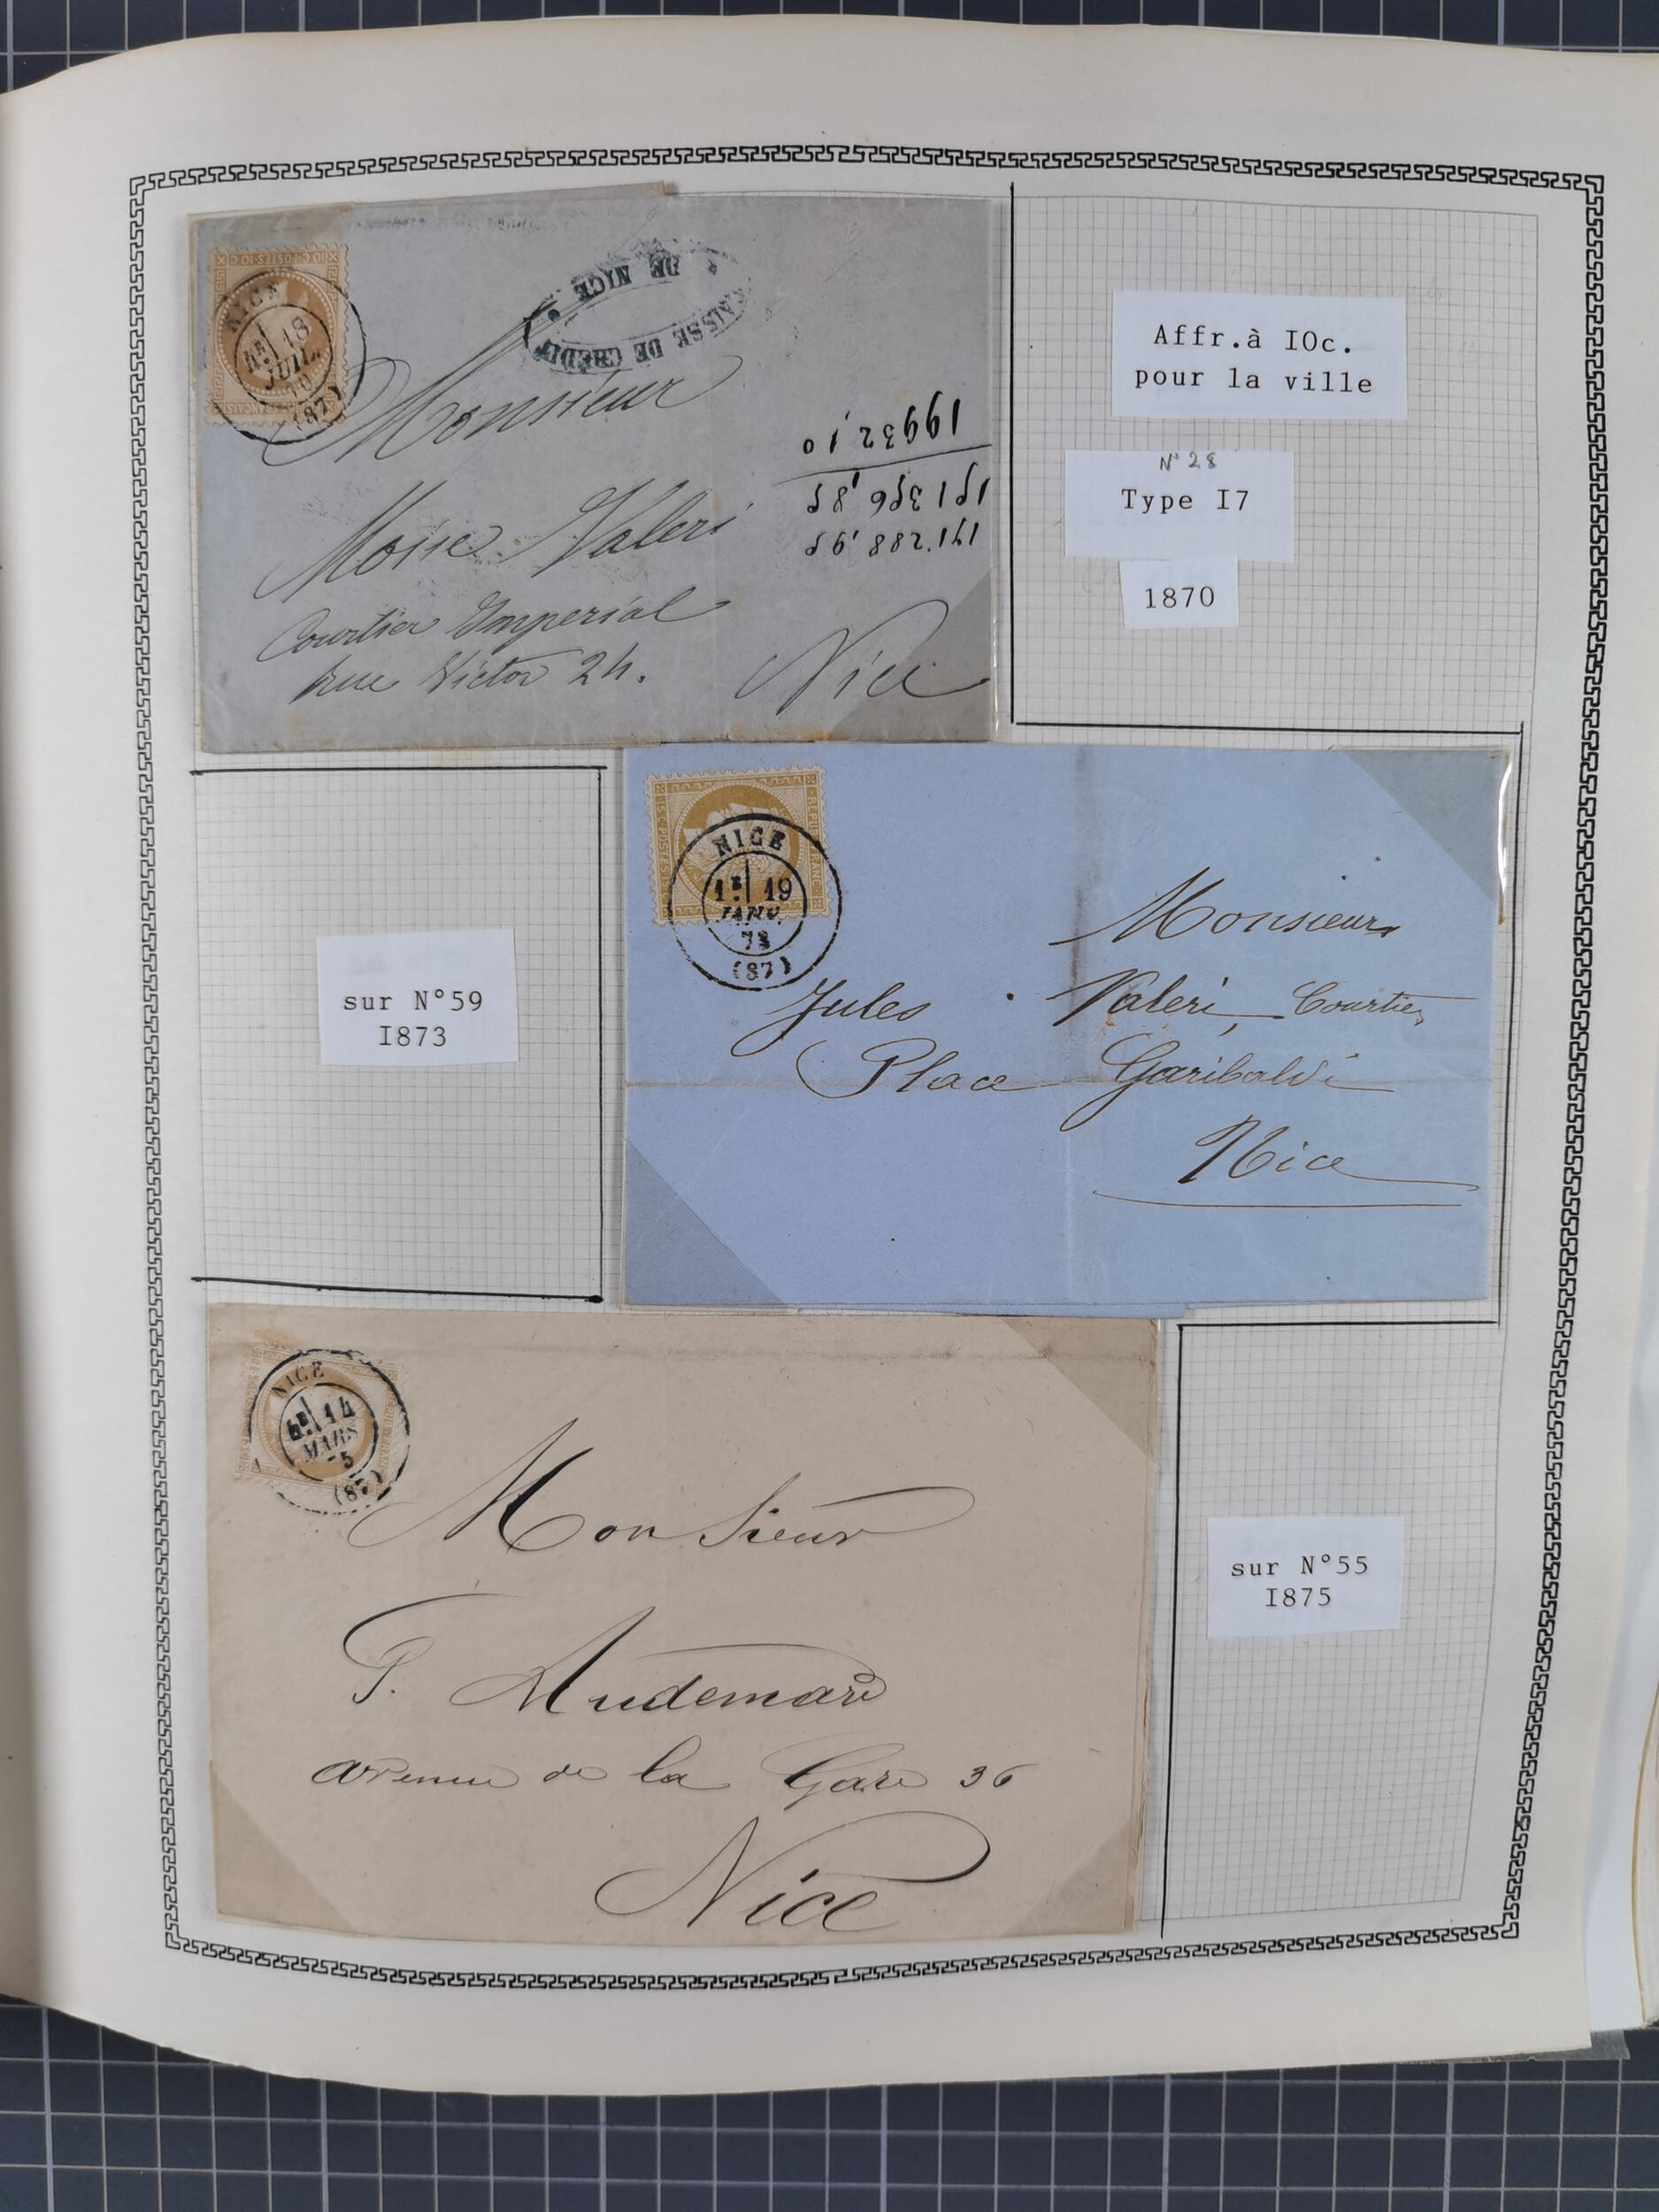 10 C POSTES 10 C
NICE
4E 18
JUIL.
70
(87)
CAISSE DE CREDIT
DE NICE
Monsieur
Moise Valeri
Courtier Imperial
Rue Victor 24.
Nice
171'288,95
191 356,85
19932,10
Affr.à IOc.
pour la ville
N° 28
Type I7
1870
sur N°59
I873
15 C POSTES
REPUB FRANC
NICE
1E 19
JANV.
73
(87)
Monsieur
Jules Valeri, Courtier
Place Garibaldi
Nice
NICE
6E 14
MARS
75
(87)
Monsieur
P. Audemard
avenue de la Gare 36
Nice
sur N°55
I875